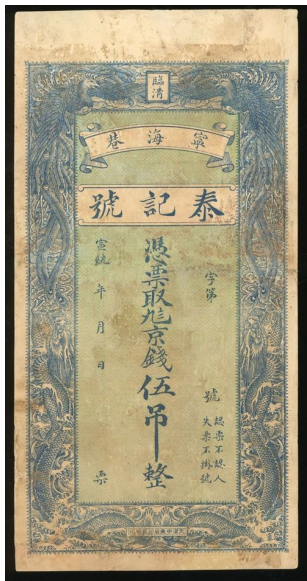 臨清
甯海巷
泰記號
字第 號
認票不認人
失票不掛號
憑票取九三京錢伍吊整
宣統 年 月 日 票